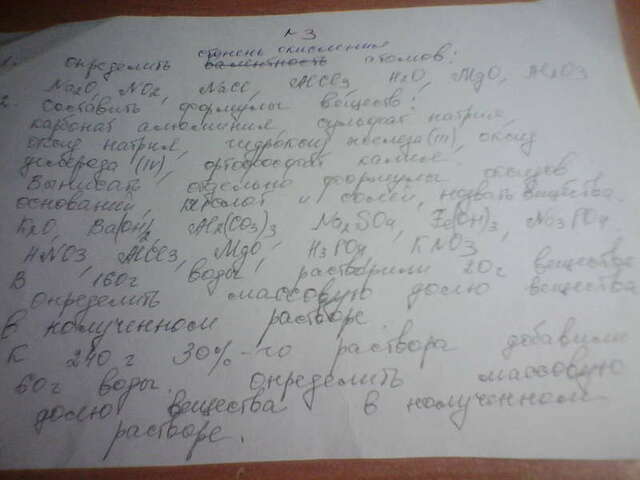 № 3
степень окисления
1. Определить валентность атомов:
Na2O, NO2, NaCl, AlCl3, H2O, MgO, Al2O3
2. Составить формулы веществ:
карбонат алюминия, сульфат натрия,
оксид натрия, гидроксид железа (III), оксид
углерода (IV), ортофосфат калия.
Выписать отдельно формулы оксидов,
оснований, кислот и солей, назвать вещества.
K2O, Ba(OH)2, Al2(CO3)3, Na2SO4, Fe(OH)3, Na3PO4
HNO3, AlCl3, MgO, H3PO4, KNO3
В 160 г воды растворили 20 г вещества
Определить массовую долю вещества
в полученном растворе
К 240 г 30%-го раствора добавили
60 г воды. Определить массовую
долю вещества в полученном
растворе.